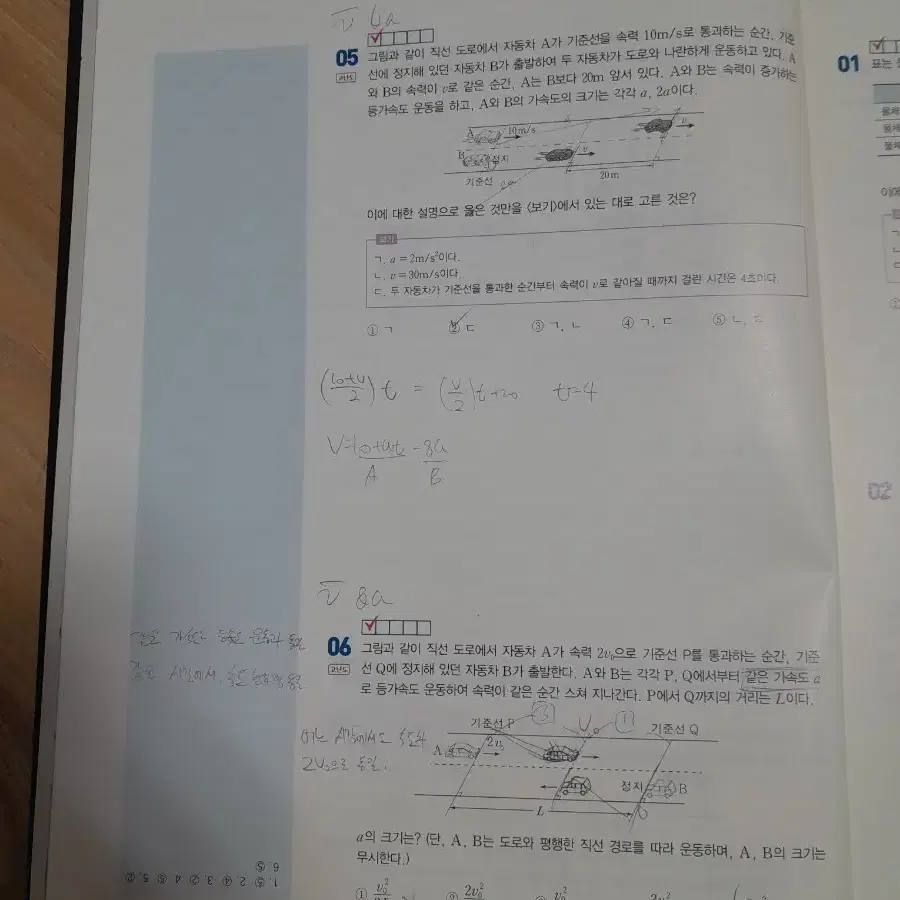 05 그림과 같이 직선 도로에서 자동차 A가 기준선을 속력 10m/s로 통과하는 순간, 기준
선에 정지해 있던 자동차 B가 출발하여 두 자동차가 도로와 나란하게 운동하고 있다. A
와 B의 속력이 v로 같은 순간, A는 B보다 20m 앞서 있다. A와 B는 속력이 증가하는
등가속도 운동을 하고, A와 B의 가속도의 크기는 각각 a, 2a이다.
A 10m/s v
B 정지 v
기준선 2a 20m
이에 대한 설명으로 옳은 것만을 〈보기〉에서 있는 대로 고른 것은?
보기
ㄱ. a=2m/s²이다.
ㄴ. v=30m/s이다.
ㄷ. 두 자동차가 기준선을 통과한 순간부터 속력이 v로 같아질 때까지 걸린 시간은 4초이다.
① ㄱ ② ㄷ ③ ㄱ, ㄴ ④ ㄱ, ㄷ ⑤ ㄴ, ㄷ
(10+v/2)t = (v/2)t+20 t=4
A B
06 그림과 같이 직선 도로에서 자동차 A가 속력 2v₀으로 기준선 P를 통과하는 순간, 기준
선 Q에 정지해 있던 자동차 B가 출발한다. A와 B는 각각 P, Q에서부터 같은 가속도 a
로 등가속도 운동하여 속력이 같은 순간 스쳐 지나간다. P에서 Q까지의 거리는 L이다.
기준선 P ③ v₀ ① 기준선 Q
A 2v₀
정지 B
L
a의 크기는? (단, A, B는 도로와 평행한 직선 경로를 따라 운동하며, A, B의 크기는
무시한다.)
2v₀으로 동일.
01 표는
물체
물체
물체
이에
02
1. ⑤ 2. ④ 3. ② 4. ⑤ 5. ②
6. ⑤